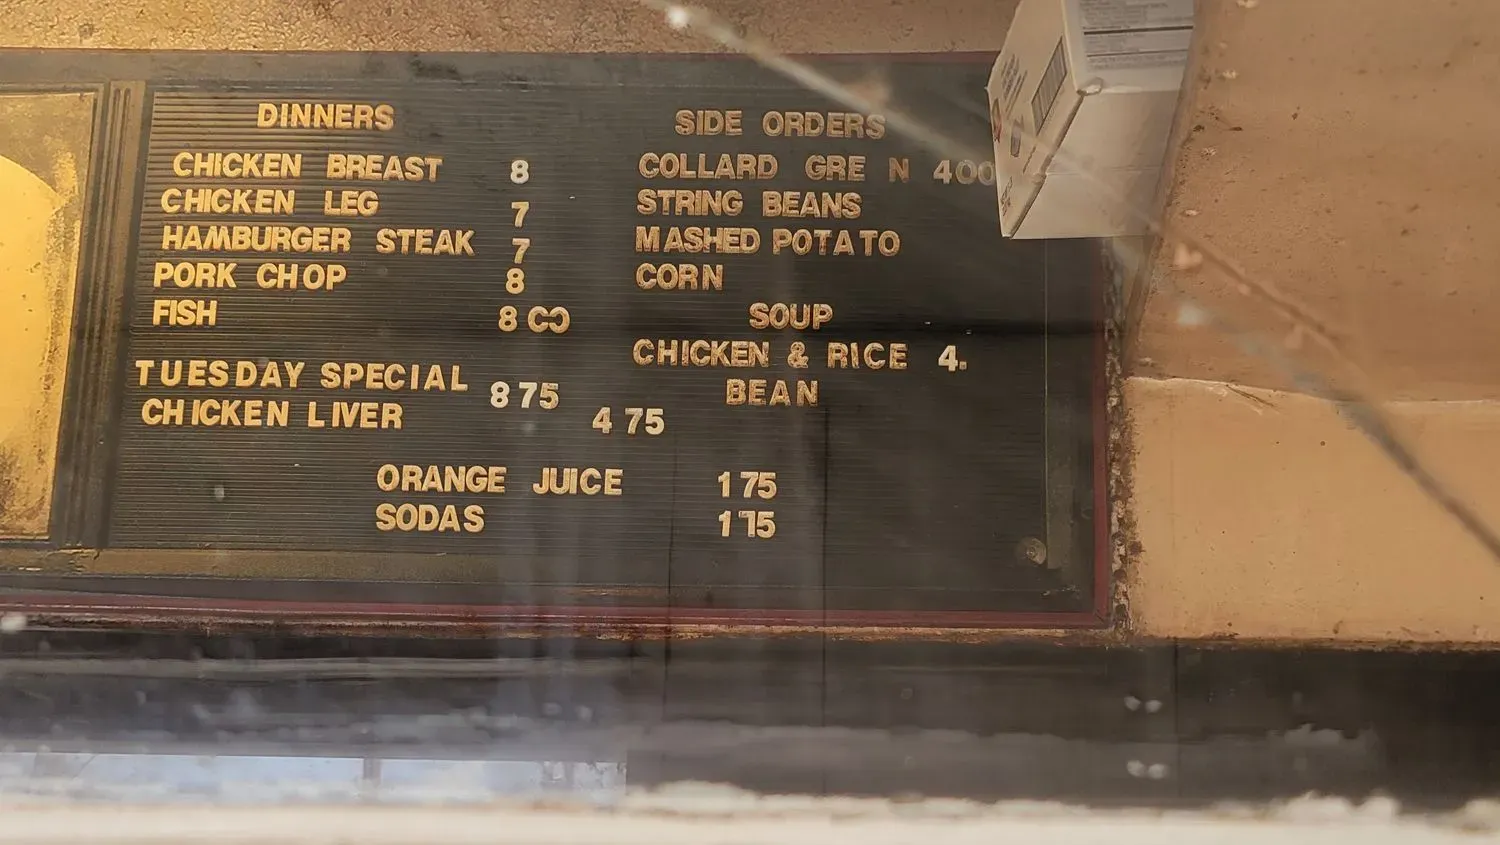 DINNERS
CHICKEN BREAST 8
CHICKEN LEG 7
HAMBURGER STEAK 7
PORK CHOP 8
FISH 8 00
TUESDAY SPECIAL 8 75
CHICKEN LIVER 4 75
SIDE ORDERS
COLLARD GRE N 400
STRING BEANS
MASHED POTATO
CORN
SOUP
CHICKEN & RICE 4.
BEAN
ORANGE JUICE 1 75
SODAS 1 75